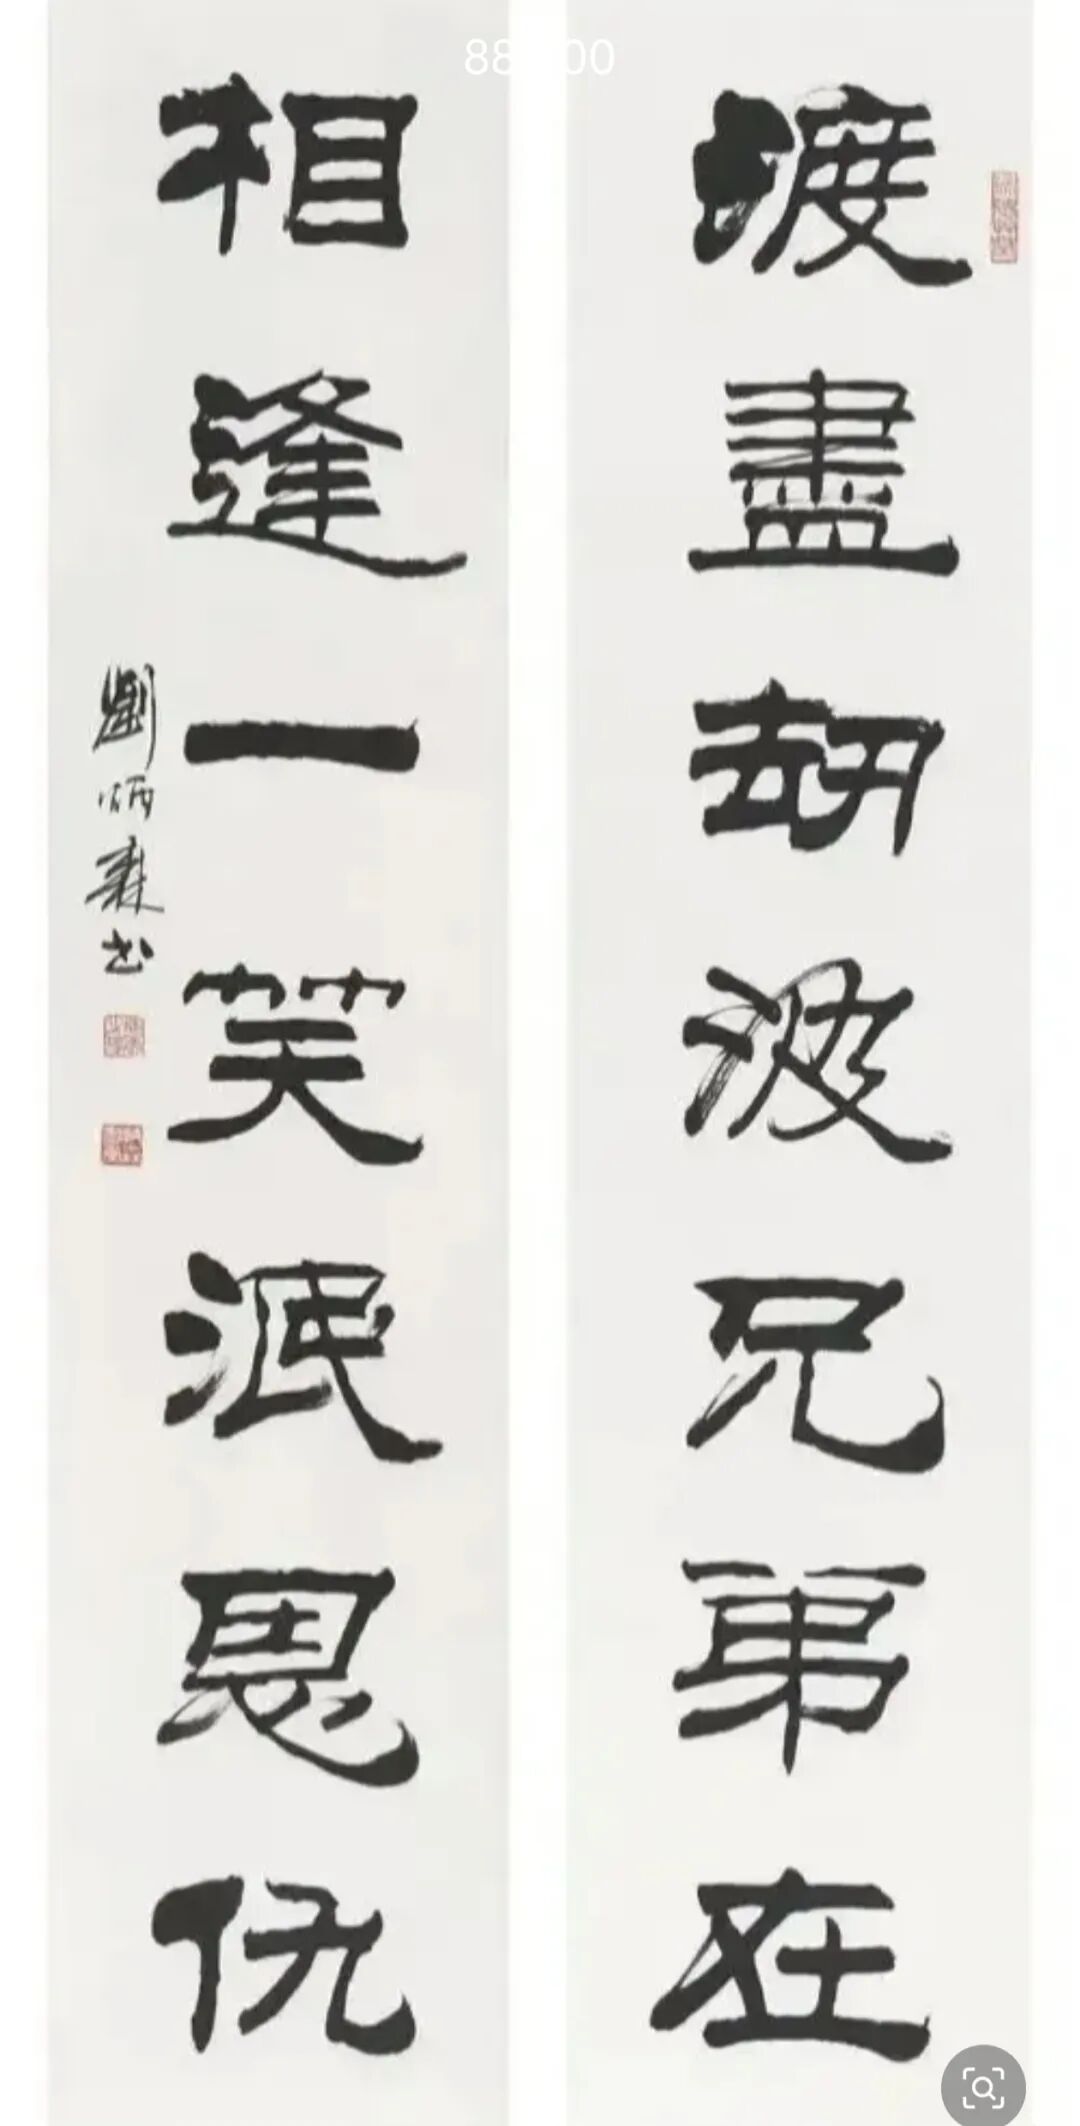 渡盡劫波兄弟在
相逢一笑泯恩仇
劉炳森书